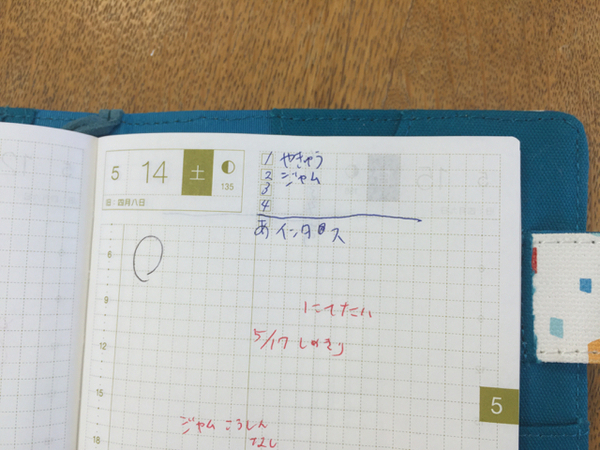 5 14 土
135
旧 四月八日
1 やきゅう
2 ジャム
3
4
あ インタ ス
6
9
12
18
5/17 しめきり
ジャム こうしん
なし
5